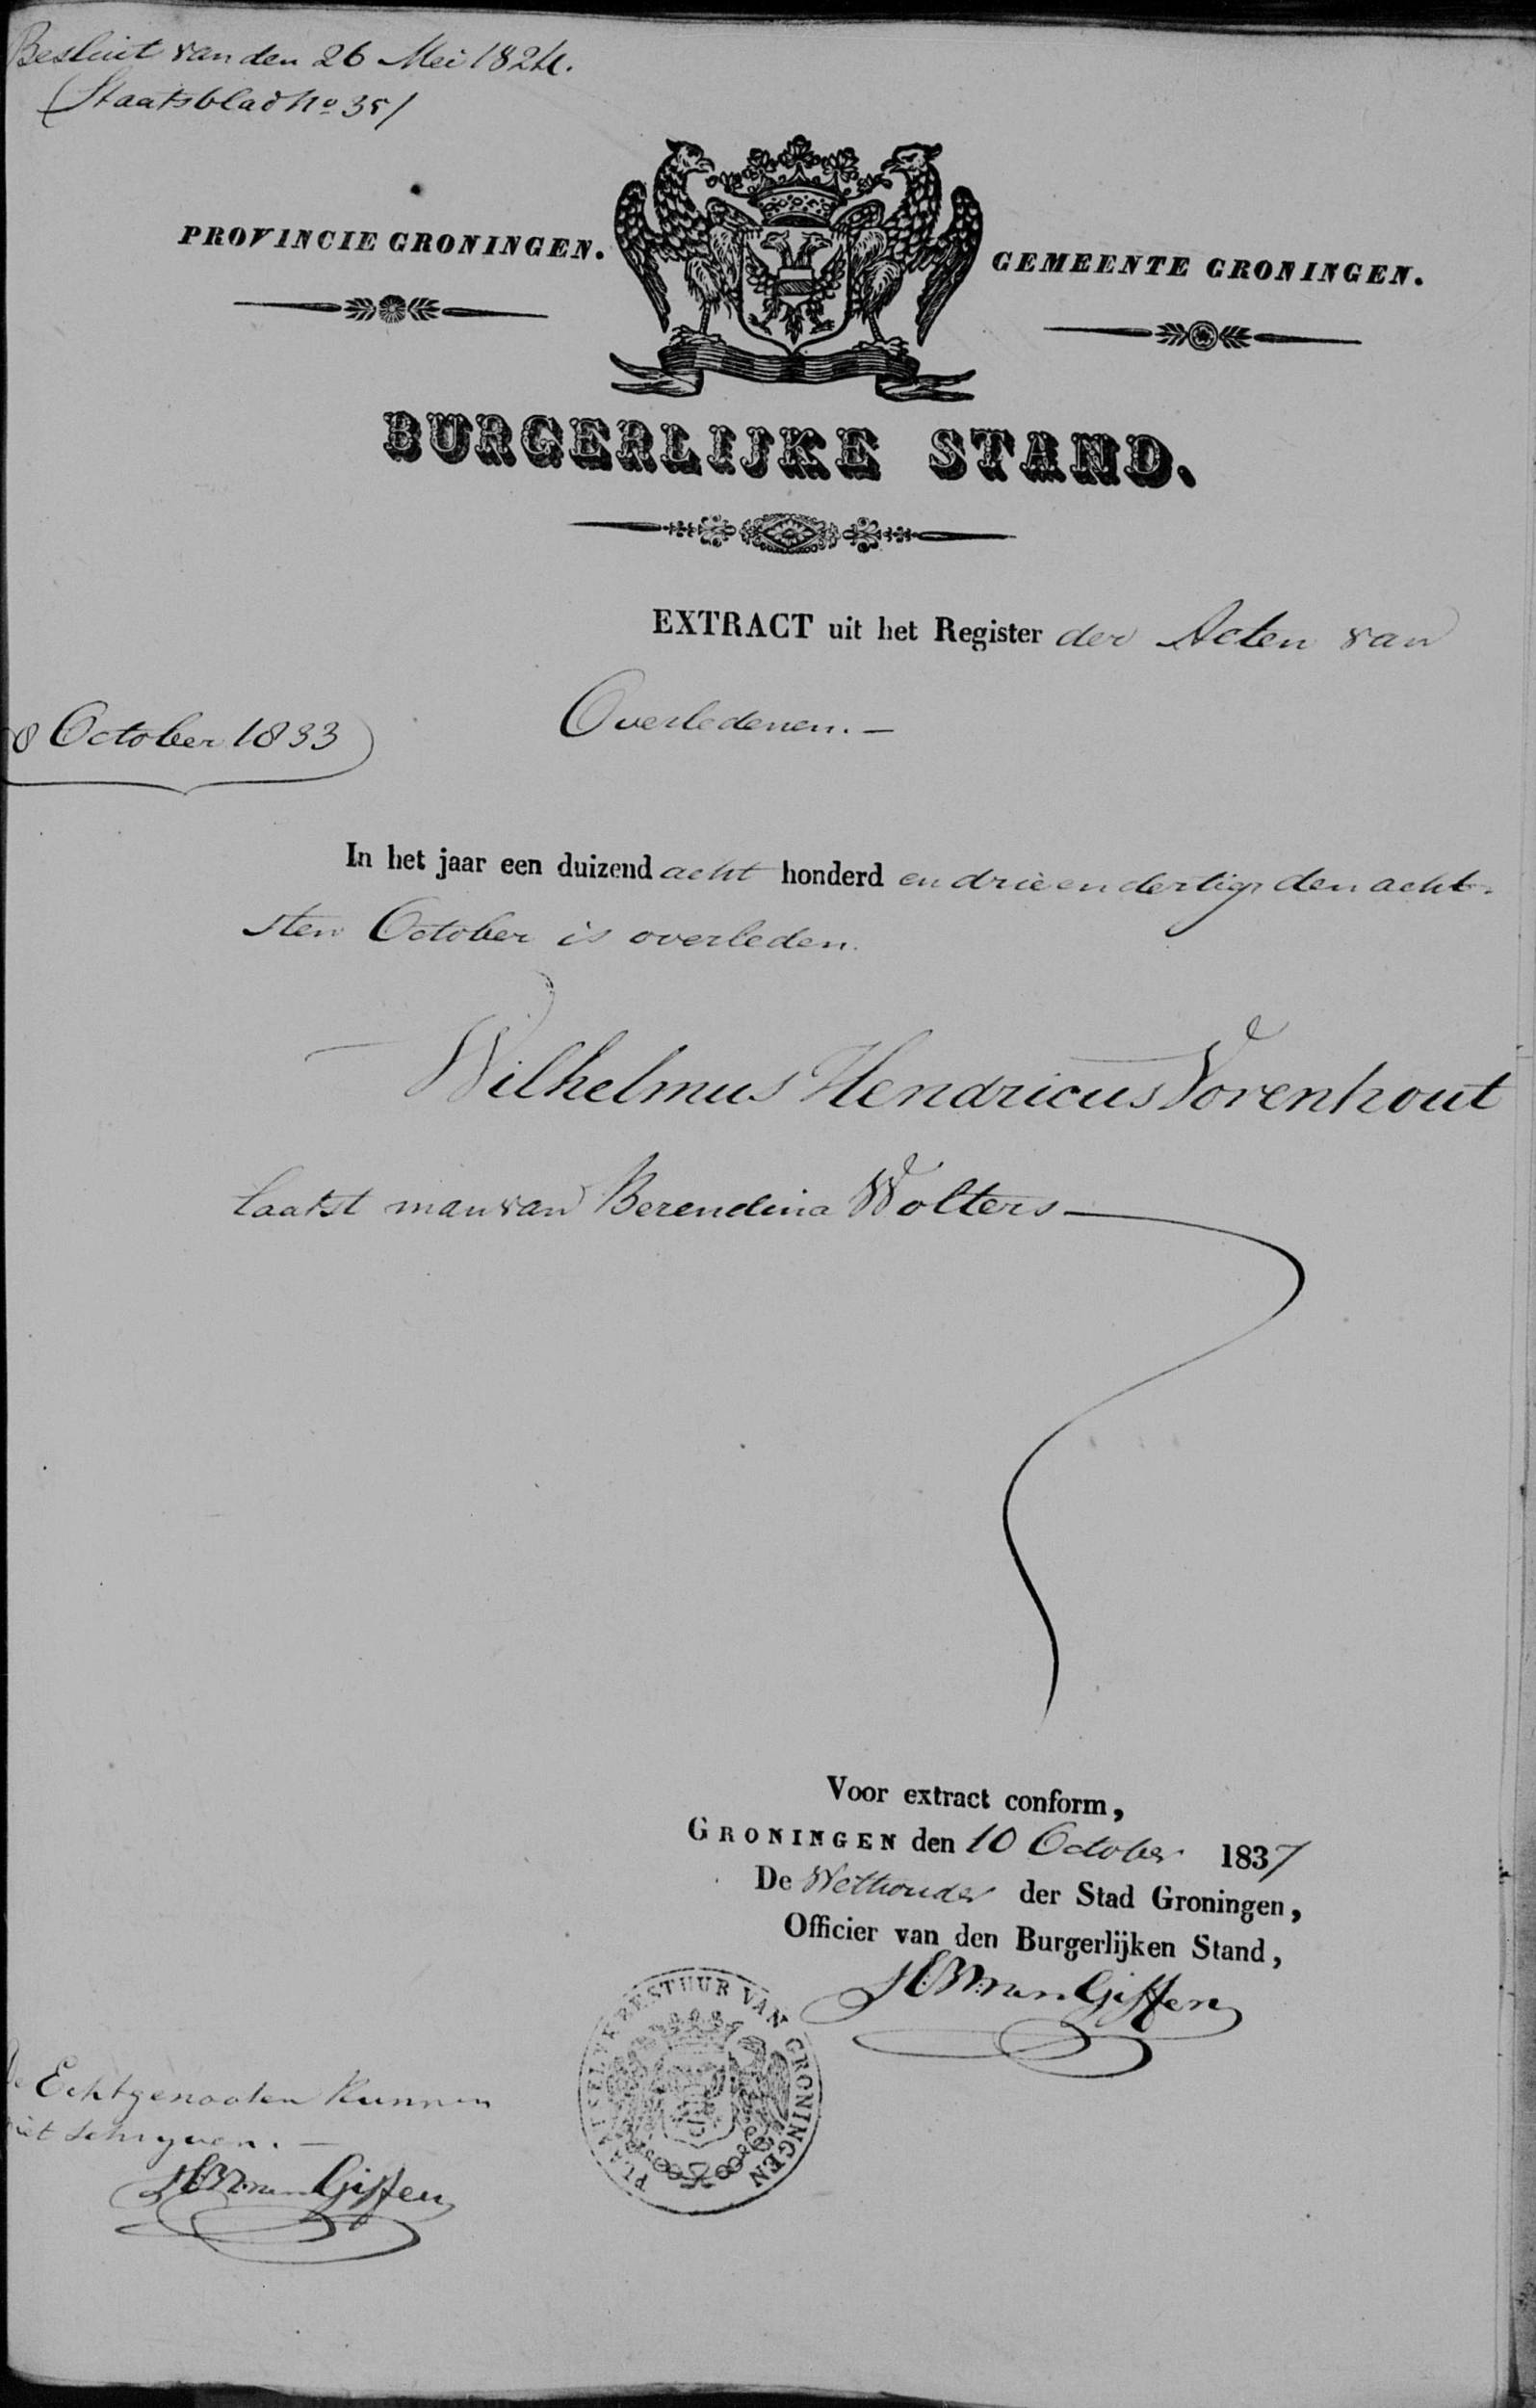 Besluit van den 26 Mei 1824.
(Staatsblad No 35)
PROVINCIE GRONINGEN.
GEMEENTE GRONINGEN.
BURGERLIJKE STAND.
EXTRACT uit het Register der Acten van
Overledenen. —
8 October 1833
In het jaar een duizend acht honderd en drie en dertig den acht-
sten October is overleden.
Wilhelmus Hendricus Vorenhout
laatst man van Berendina Wolters —
Voor extract conform,
GRONINGEN den 10 October 1837
De Wethouder der Stad Groningen,
Officier van den Burgerlijken Stand,
van Giffen
PLAATSELYK BESTUUR VAN GRONINGEN
De Echtgenooten kunnen
niet schryven. —
van Giffen